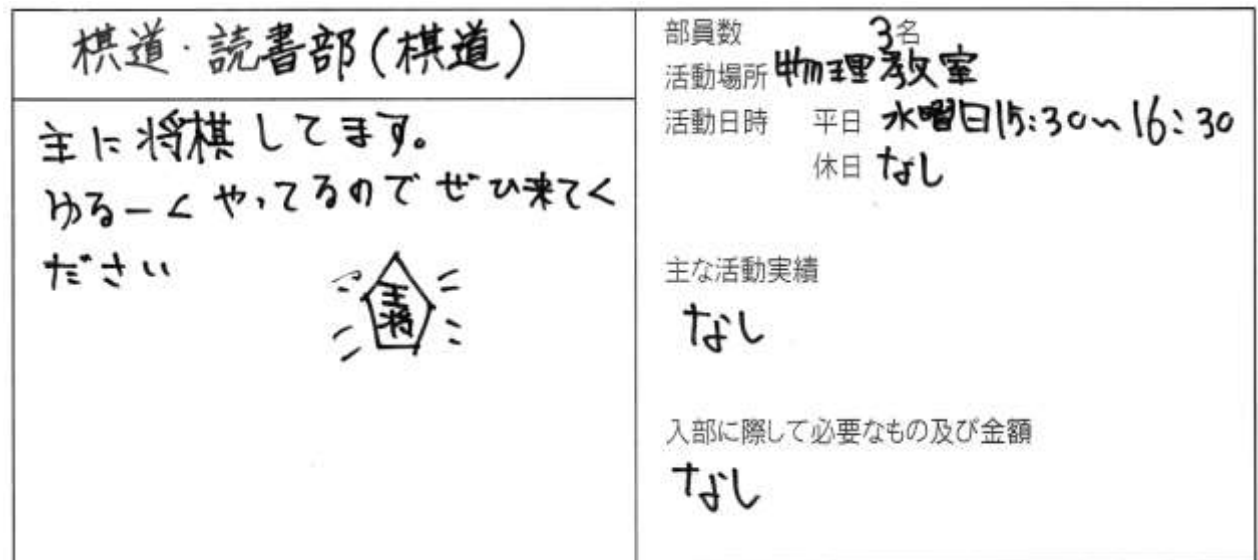 棋道・読書部(棋道)
主に将棋してます。
ゆるーくやってるのでぜひ来てく
ださい
王将
部員数 3名
活動場所 物理教室
活動日時 平日 水曜日15:30~16:30
休日 なし
主な活動実績
なし
入部に際して必要なもの及び金額
なし